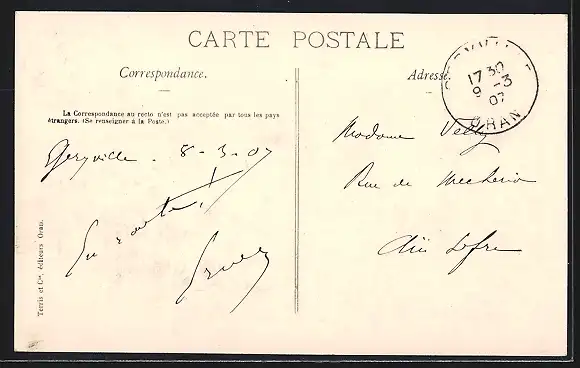 CARTE POSTALE
Correspondance.
Adresse
La Correspondance au recto n'est pas acceptée par tous les pays
étrangers. (Se renseigner à la Poste.)
Geryville - 8-3-07
En route!
GERYVILLE
17 30
9 -3
07
ORAN
Madame
Rue de Mecheria
Aïn Sefra
Terris et Cie, éditeurs Oran.